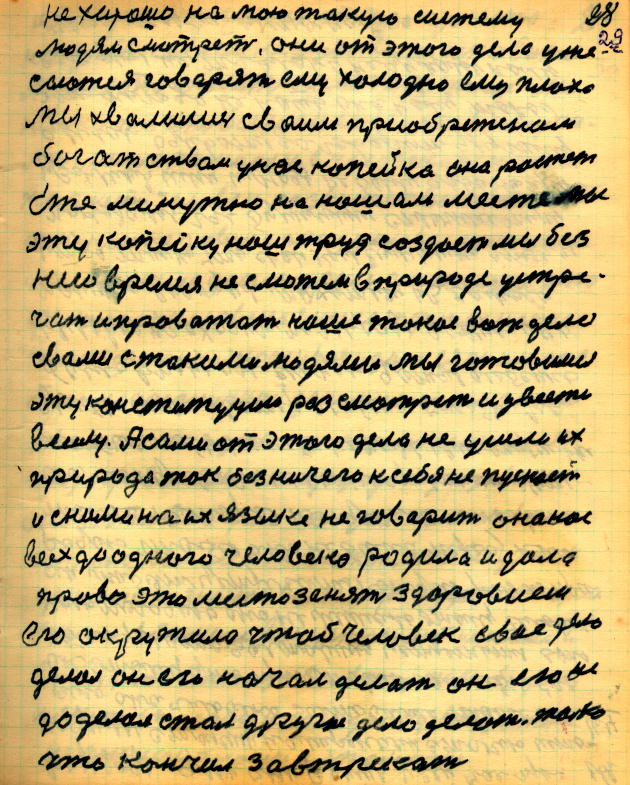 не хорошо на мою такую систему 28
29
людям смотреть, они от этого дела ужа
саются говарят ему холодно ему плохо
мы хвалимия своим приобретеном
богатствам унас копейка она ростет
сто минутно на нашам месте мы
эту копейку наш труд создает мы без
него время не сможем в природе устре-
чат и проватат наше такое вот дело
свами стакими людями мы готовилис
эту конституцию розсмотрет и увести
веизму. Асами от этого дела не ушли их
природа так безничего ксебя не пускает
и снимина их языке не говарит она нас
всех до одного человека родила и дала
право это место занят здоровием
его окружило чтоб человек свое дело
делал он его начал делат он его не
доделал стал другое дело делат. только
что кончил завтрекат